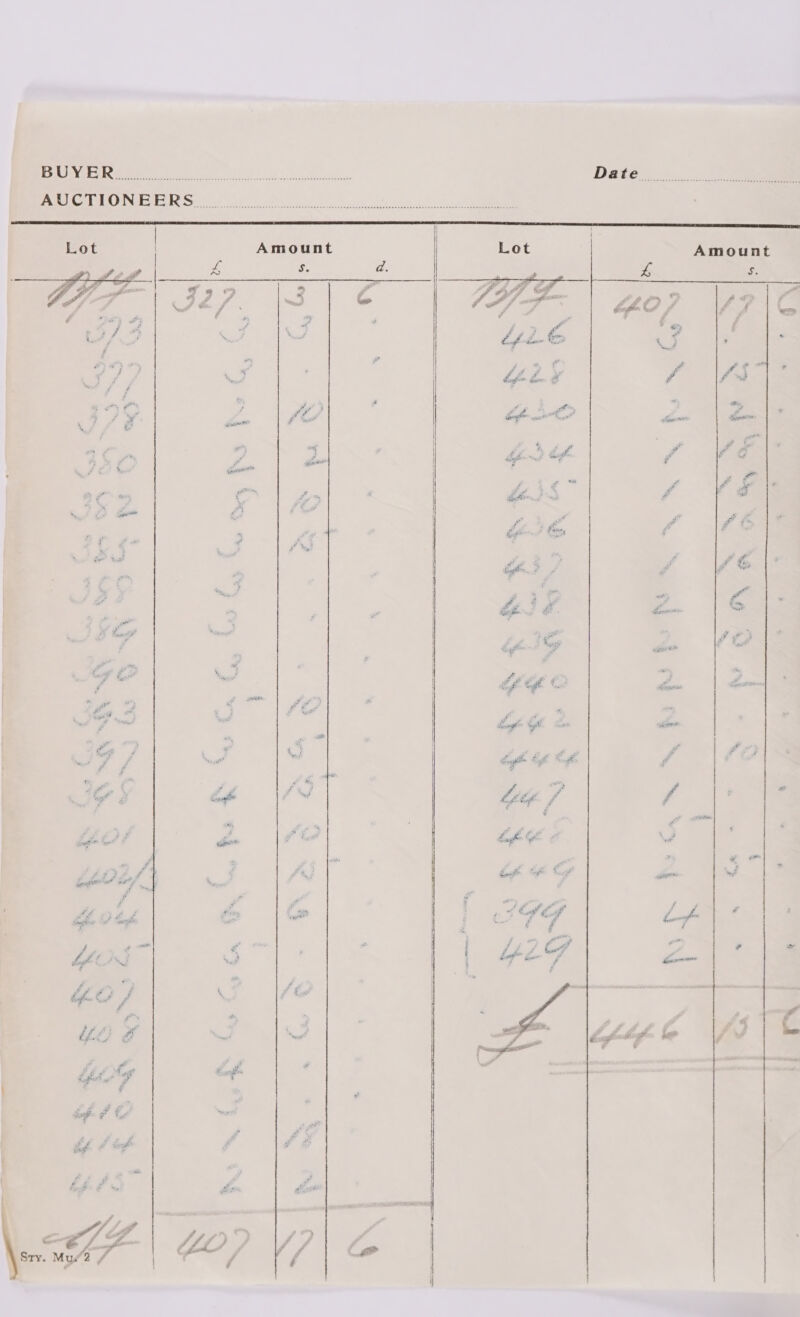 BUYER
Date
AUCTIONEERS
Lot Amount
£ s. d.
B/F 327. 3 6
373 3 3 -
377 3 . -
378 2 10 -
380 2 2 -
382 8 10 -
385 3 15 -
388 3 . -
389 3 . -
390 3 . -
393 5 10 -
397 3 5 -
398 4 15
401 2 10
402/3 3 15
404 6 6
405 5 . -
407 3 10
408 3 3
409 4 .
410 3 . .
414 1 18
415 2 2
C/F 407 17 6
Sty. Mus. 2
Lot Amount
£ s.
B/F 407 17 6
426 3 . -
428 1 15 -
430 2 2 -
434 1 18 -
435 1 18 -
436 1 16 -
437 1 16 -
438 2 6 -
439 2 10 -
440 2 2 -
442 2 . -
444 1 10 -
447 1 . -
448 5 . -
449 2 5 -
[ 399 4 . .
[ 429 2 . -
£ 446 15 6